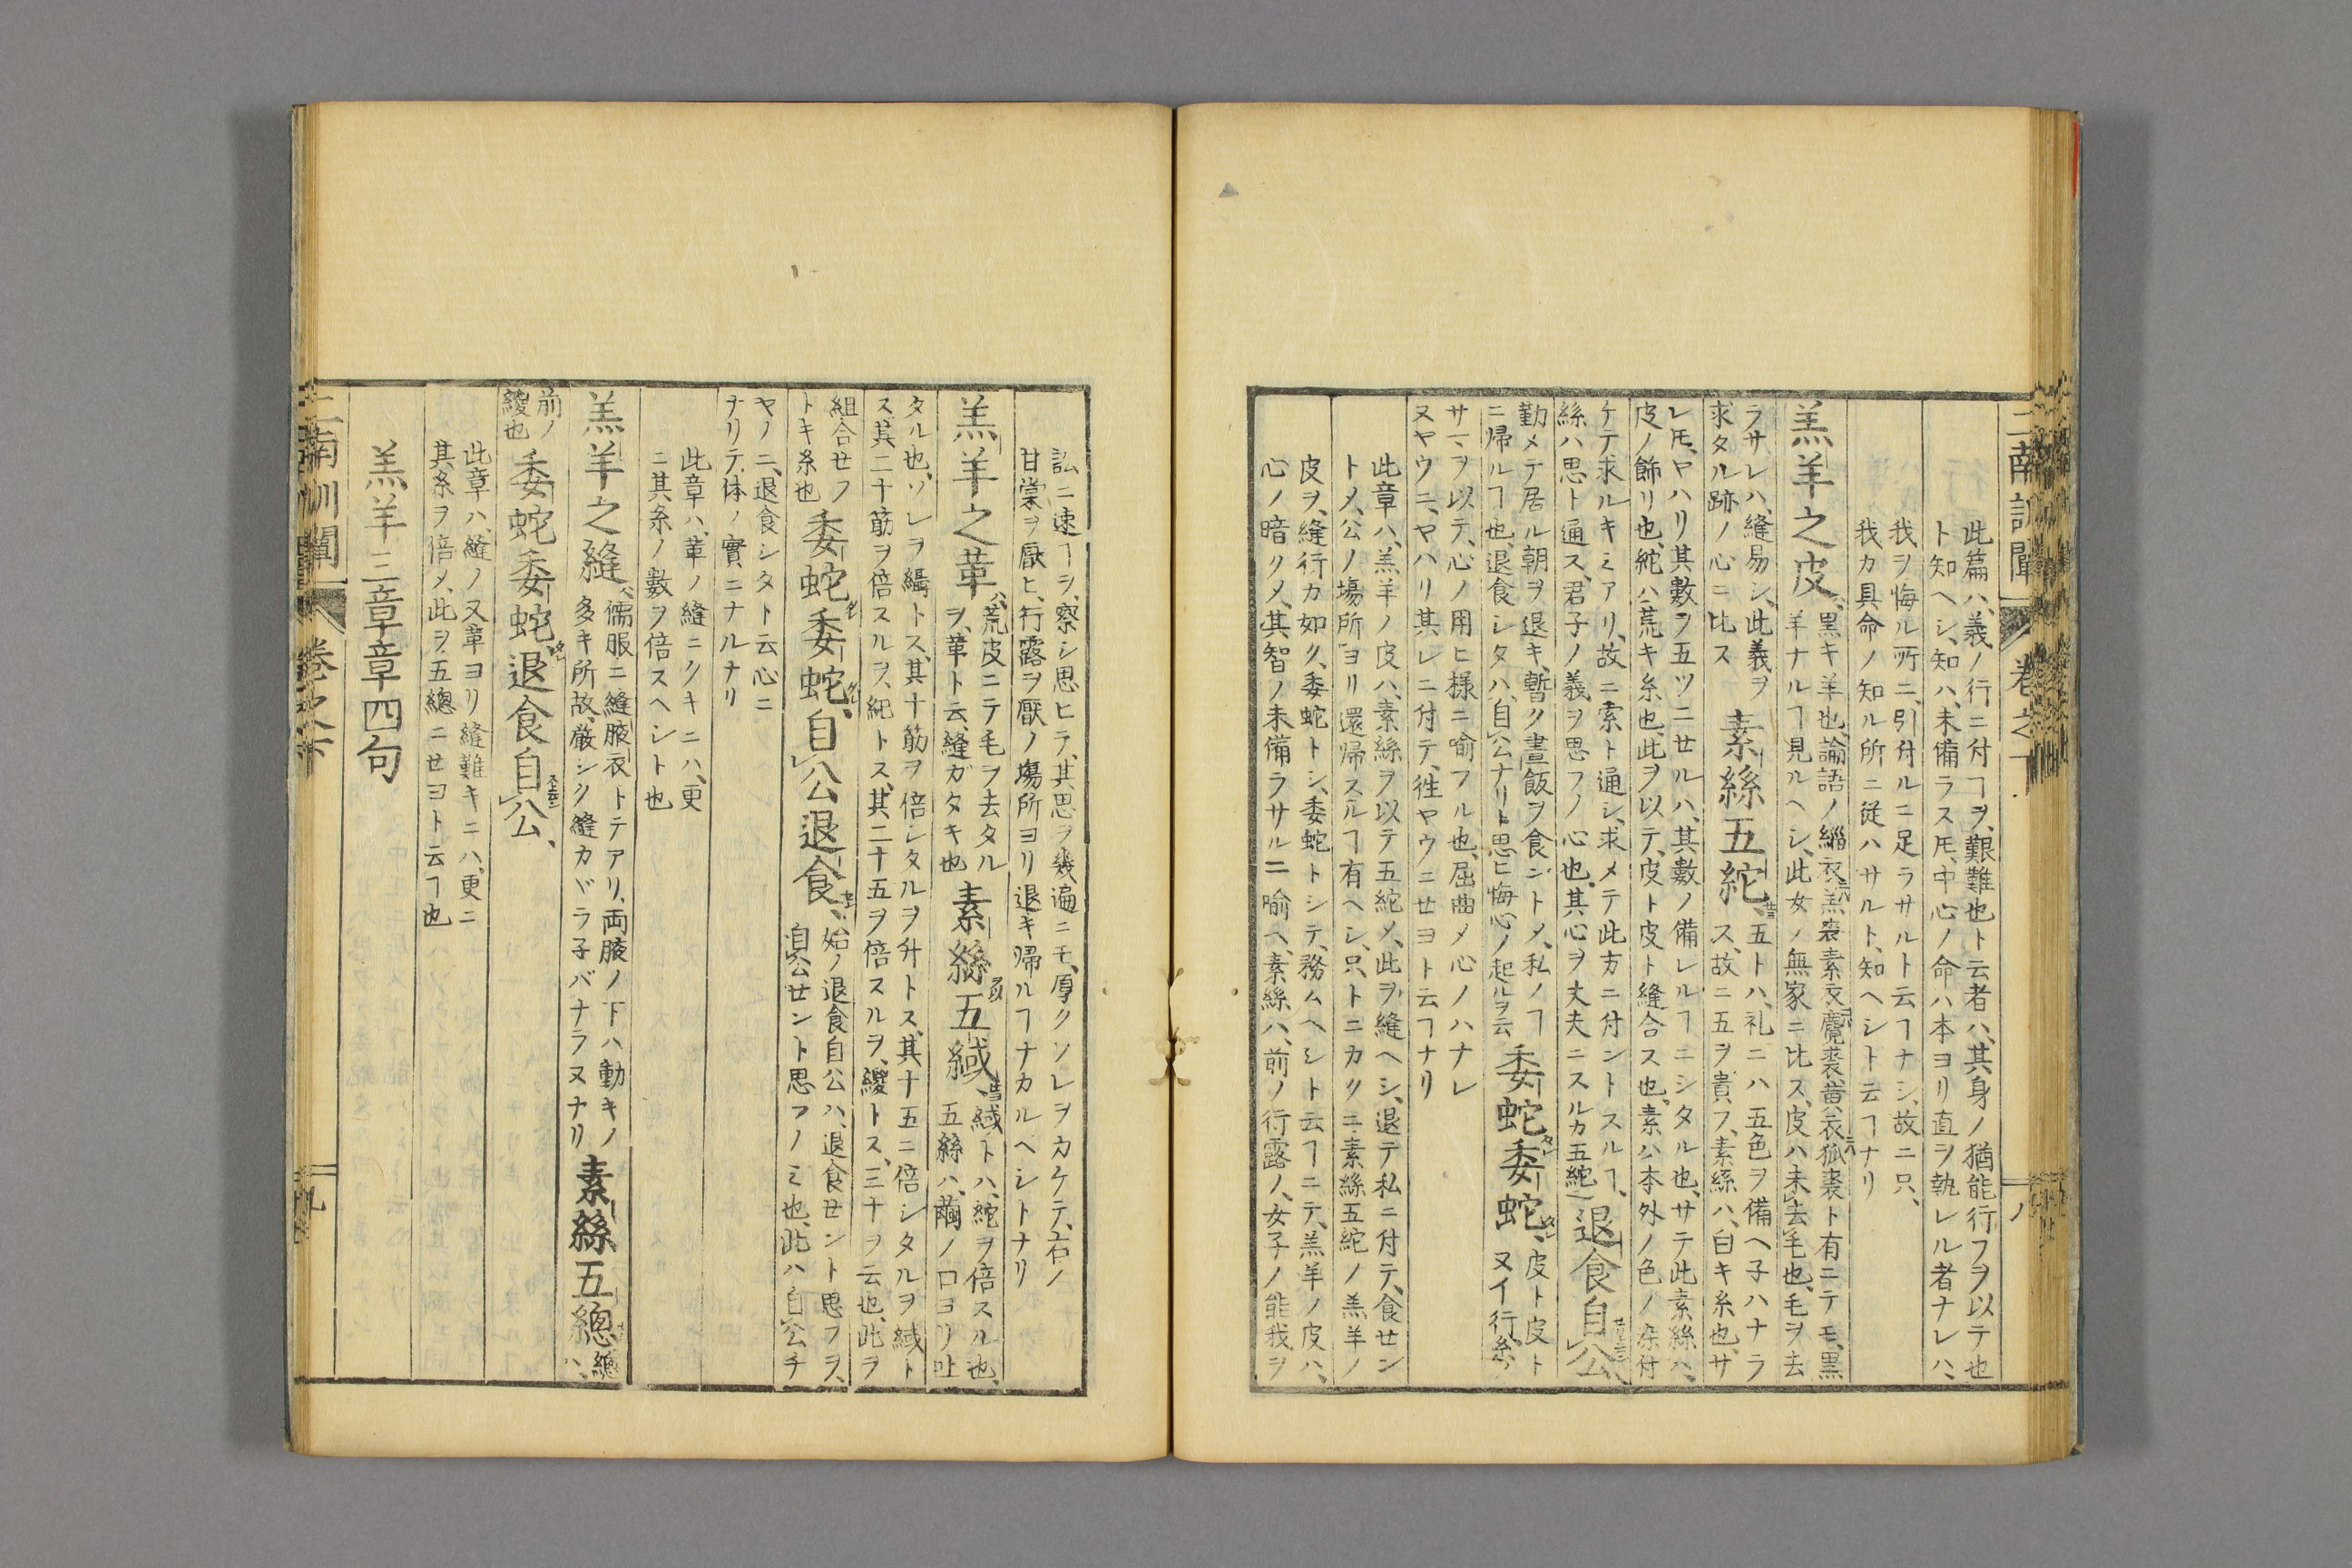 此篇ハ、義ノ行ニ付ヿヲ、艱難也ト云者ハ、其身ノ猶能行フヲ以テ也
ト知ヘシ、知ハ、未備ラス𪜈、中心ノ命ハ本ヨリ直ヲ執レル者ナレハ、
我ヲ悔ル所ニ、引付ルニ足ラサルト云ヿナシ、故ニ只、
我カ具命ノ知ル所ニ従ハサルト、知ヘシト云ヿナリ
羔羊之皮、
ハ、黒キ羊也、論語ノ緇衣羔裘素衣麑裘黄衣狐裘ト有ニテモ、黒
羊ナルヿ見ルヘシ、此女ノ無家ニ比ス、皮ハ未去毛也、毛ヲ去
ラサレハ、縫易シ、此義ヲ
求タル跡ノ心ニ比ス
素絲五紽、
五トハ、礼ニハ五色ヲ備ヘ子ハナラ
ス、故ニ五ヲ貴フ、素絲ハ、白キ糸也、サ
レ𪜈、ヤハリ其數ヲ五ツニセルハ、其數ノ備レルヿニシタル也、サテ此素絲ハ、
皮ノ飾リ也、紽ハ荒キ糸也、此ヲ以テ、皮ト皮ト縫合ス也、素ハ本外ノ色ノ染付
ケテ求ルキミアリ、故ニ索ト通シ、求メテ此方ニ付ントスルヿ、
絲ハ思ト通ス、君子ノ義ヲ思フノ心也、其心ヲ丈夫ニスルカ五紽
退食自公、
勤メテ居ル朝ヲ退キ、暫ク晝飯ヲ食ントメ、私ノヿ
ニ帰ルヿ也、退食シタハ、自公ナリト思ヒ悔心ノ起ルヲ云
委蛇委蛇、
皮ト皮ト
ヌイ行、糸
サマヲ以テ、心ノ用ヒ様ニ喻フル也、屈曲メ心ノハナレ
ヌヤウニ、ヤハリ其レニ付テ、徃ヤウニセヨト云ヿナリ
此章ハ、羔羊ノ皮ハ、素絲ヲ以テ五紽メ、此ヲ縫ヘシ、退テ私ニ付テ、食セン
トメ、公ノ場所ヨリ還帰スルヿ有ヘシ、只、トニカクニ素絲五紽ノ羔羊ノ
皮ヲ、縫行カ如ク、委蛇トシ、委蛇トシテ、務ムヘシト云ヿニテ、羔羊ノ皮ハ、
心ノ暗クメ、其智ノ未備ラサルニ喻ヘ、素絲ハ、前ノ行露ノ、女子ノ能我ヲ
訟ニ速ヿヲ、察シ思ヒテ、其思ヲ幾遍ニモ、厚クソレヲカケテ、右ノ
甘棠ヲ厭ヒ、行露ヲ厭ノ場所ヨリ退キ帰ルヿナカルヘシトナリ
羔羊之革、
ハ、荒皮ニテ毛ヲ去タル
ヲ、革ト云、縫ガタキ也
素絲五緎、
緎トハ、紽ヲ倍スル也、
五絲ハ、繭ノ口ヨリ吐
タル也、ソレヲ繦トス、其十筋ヲ倍シタルヲ升トス、其十五ニ倍シタルヲ緎ト
ス、其二十筋ヲ倍スルヲ、紀トス、其二十五ヲ倍スルヲ、緵トス、三十ヲ云也、此ヲ
組合セフ
トキ糸也
委蛇委蛇、自公退食、
始ノ退食自公ハ、退食セント思フヲ、
自公セント思フノミ也、此ハ自公チ
ヤノニ、退食シタト云心ニ
ナリテ、体ノ實ニナルナリ
此章ハ、革ノ縫ニクキニハ、更
ニ其糸ノ數ヲ倍スヘシト也
羔羊之縫、
ハ、儒服ニ縫腋衣トテアリ、両腋ノ下ハ動キノ
多キ所故、厳シク縫カヾラ子バナラヌナリ
素絲五總、
總
ハ、
前ノ
緵也
委蛇委蛇退食自公、
此章ハ、縫ノ又革ヨリ縫難キニハ、更ニ
其糸ヲ倍メ、此ヲ五總ニセヨト云ヿ也
羔羊三章章四句
二南訓闡 卷之下 九